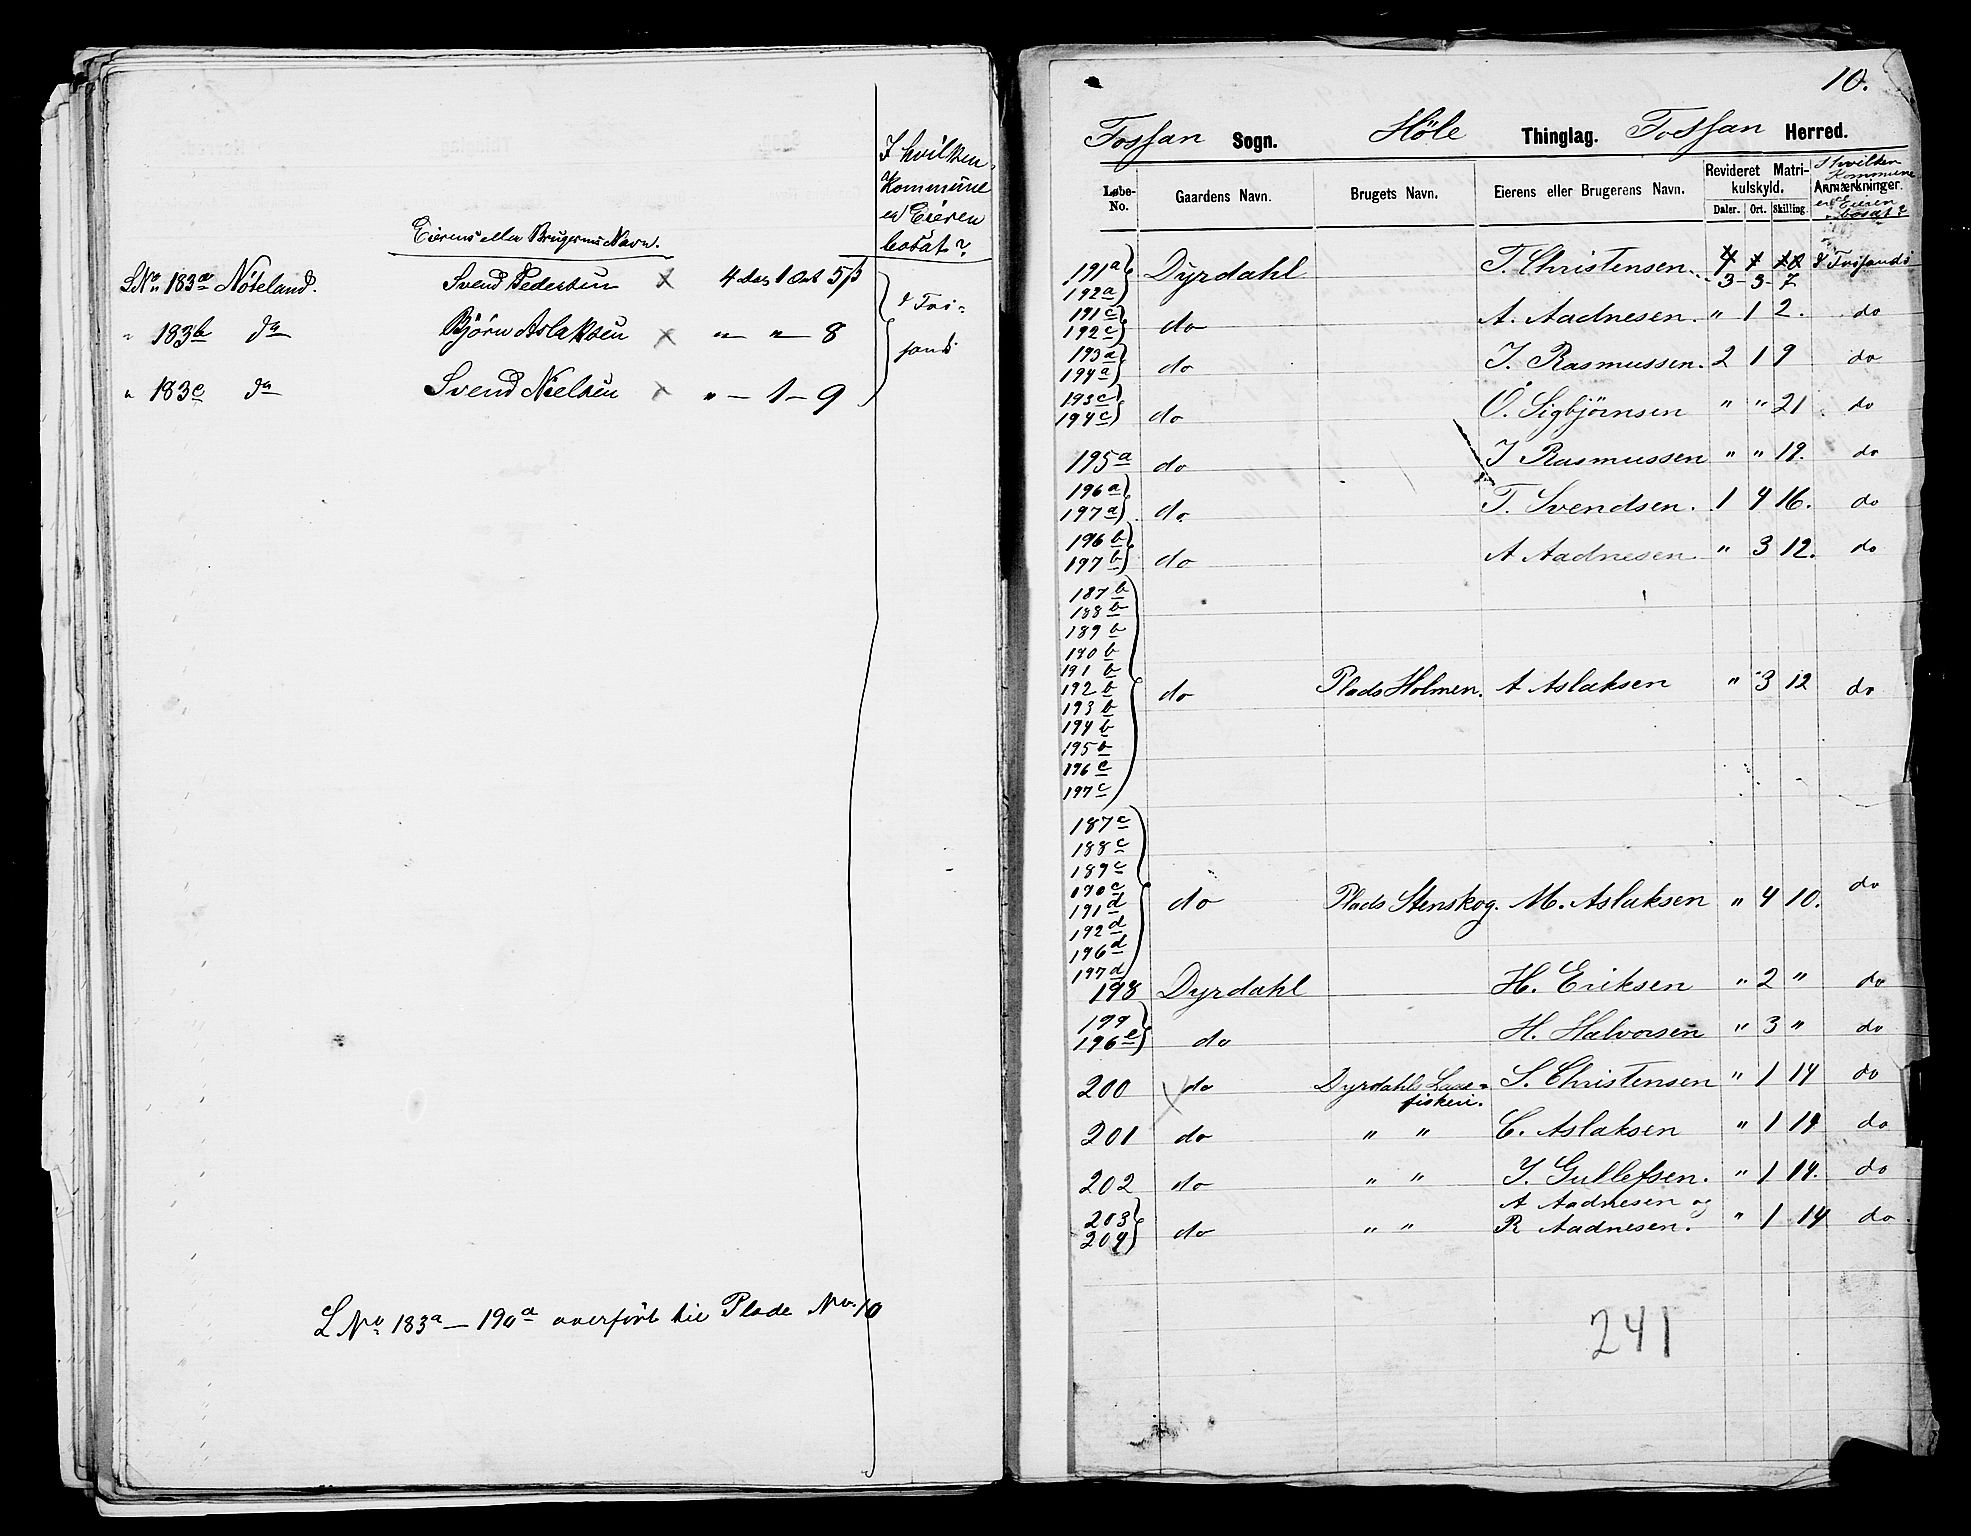 I hvilken
Kommune
er Eieren
bosat?
Eierens eller Brugerens Navn.
LNo 183a Nöteland. Svend Pedersen x 4 Daler 1 Ort 5 ß
" 183b do Björn Aslaksen x " — " — 8
" 183c do Svend Nielsen x " — 1 — 9
i Fos-
sand
L No 183a — 190a overfört til Plade No. 10
10.
Fossan Sogn. Höle Thinglag. Fossan Herred.
Løbe-No. Gaardens Navn. Brugets Navn. Eierens eller Brugerens Navn. Revideret Matrikulskyld. Daler. Ort. Skilling. Anmærkninger.
I hvilken Kommune er Eieren bosat?
191a Dyrdahl T. Christensen. 4 1 18 i Fossand
192a 3 - 3 - 7
191c
192c do A. Aadnesen. " 1 2. do
193a
194a do J. Rasmussen. 2 1 9 do
193c
194c do O. Sigbjörnsen " " 21 do
195a do J Rasmussen " " 19. do
196a
197a do T. Svendsen. 1 4 16. do
196b
197b do A Aadnesen " 3 12. do
187b
188b
189b
190b
191b
192b do Plads Holmen. A Aslaksen " 3 12 do
193b
194b
195b
196c
197c
187c
188c
189c
190c
191d do Plads Stenskog. M. Aslaksen " 4 10. do
192d
196d
197d
198 Dyrdahl H. Eriksen " 2 " do
199
196e do H. Halvorsen " 3 " do
200 do Dyrdahls Laxe- S. Christensen " 1 14 do
fiskeri.
201 do " " C. Aslaksen " 1 14 do
202 do " " J. Gullefsen. " 1 14. do
203 A Aadnesen og
204 do " " R Aadnesen. " 1 14 do
241